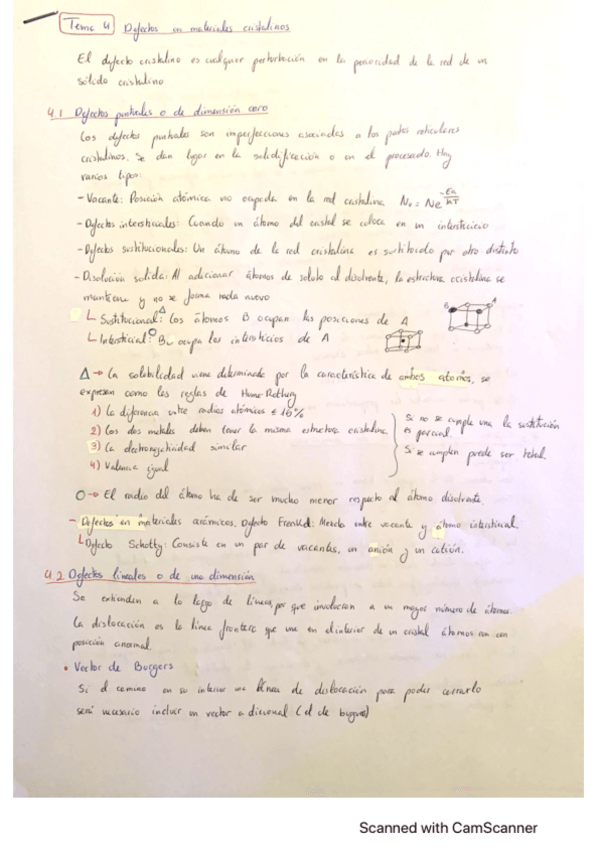 Tema 4 Defectos en materiales cristalinos
El defecto cristalino es cualquier perturbación en la periocidad de la red de un
sólido cristalino
4.1 Defectos puntuales o de dimensión cero
Los defectos puntuales son imperfecciones asociadas a los puntos reticulares
cristalinos. Se dan lugar en la solidificación o en el procesado. Hay
varios tipos:
- Vacante: Posición atómica no ocupada en la red cristalina Nv = Ne
- Defectos intersticiales: Cuando un átomo del cristal se coloca en un intersticio
- Defectos sustitucionales: Un átomo de la red cristalina es sustituido por otro distinto
- Disolución sólida: Al adicionar átomos de soluto al disolvente, la estructura cristalina se
mantiene y no se forma nada nuevo
Sustitucional: Los átomos B ocupan las posiciones de A
Intersticial: B ocupa los intersticios de A
B A
Δ → La solubilidad viene determinada por la característica de ambos átomos, se
expresan como las reglas de Hume-Rothery
1) La diferencia entre radios atómicos ≤ 15%
2) Los dos metales deben tener la misma estructura cristalina
3) La electronegatividad similar
4) Valencia igual
Si no se cumple una la sustitución
es parcial.
Si se cumplen puede ser total.
O → El radio del átomo ha de ser mucho menor respecto al átomo disolvente.
- Defectos en materiales cerámicos. Defecto Frenkel: Mezcla entre vacante y átomo intersticial.
Defecto Schotty: Consiste en un par de vacantes, un anión y un catión.
4.2 Defectos lineales o de una dimensión
Se extienden a lo largo de líneas, por que involucran a un mayor número de átomos.
La dislocación es la línea frontera que une en el interior de un cristal átomos con
posición anormal
• Vector de Burgers
Si el camino en su interior una línea de dislocación para poder cerrarlo
será necesario incluir un vector adicional (el de burgers)
Scanned with CamScanner